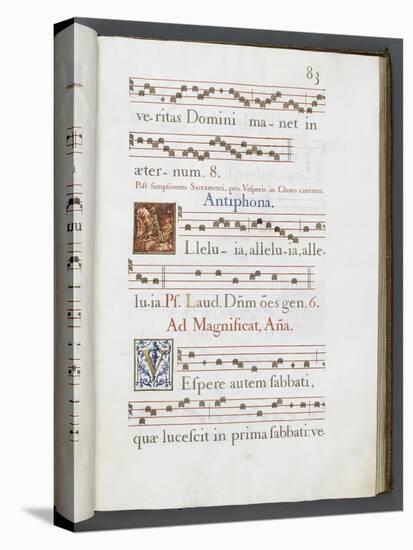 83
ve-ritas Domini ma-net in
æter-num. 8.
Post sumptionem Sacramenti, pro Vesperis in Choro cantatur.
Antiphona.
Llelu-ia, allelu-ia, alle-
lu-ia. Ps. Laud. Dñm oēs gen. 6.
Ad Magnificat, Aña.
VEspere autem sabbati,
quæ lucescit in prima sabbati: ve-